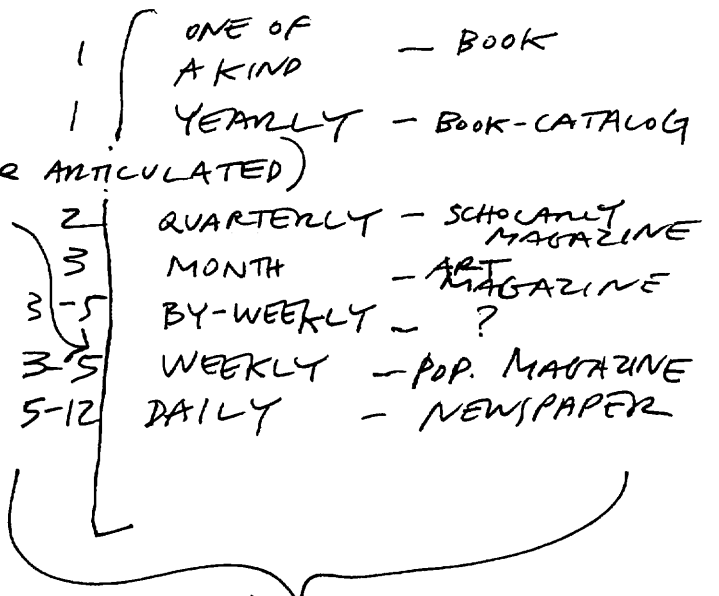 1 ONE OF A KIND — BOOK
1 YEARLY — BOOK-CATALOG
ARTICULATED)
2 QUARTERLY — SCHOLARLY MAGAZINE
3 MONTH — ART MAGAZINE
3-5 BY-WEEKLY — ?
3-5 WEEKLY — POP. MAGAZINE
5-12 DAILY — NEWSPAPER